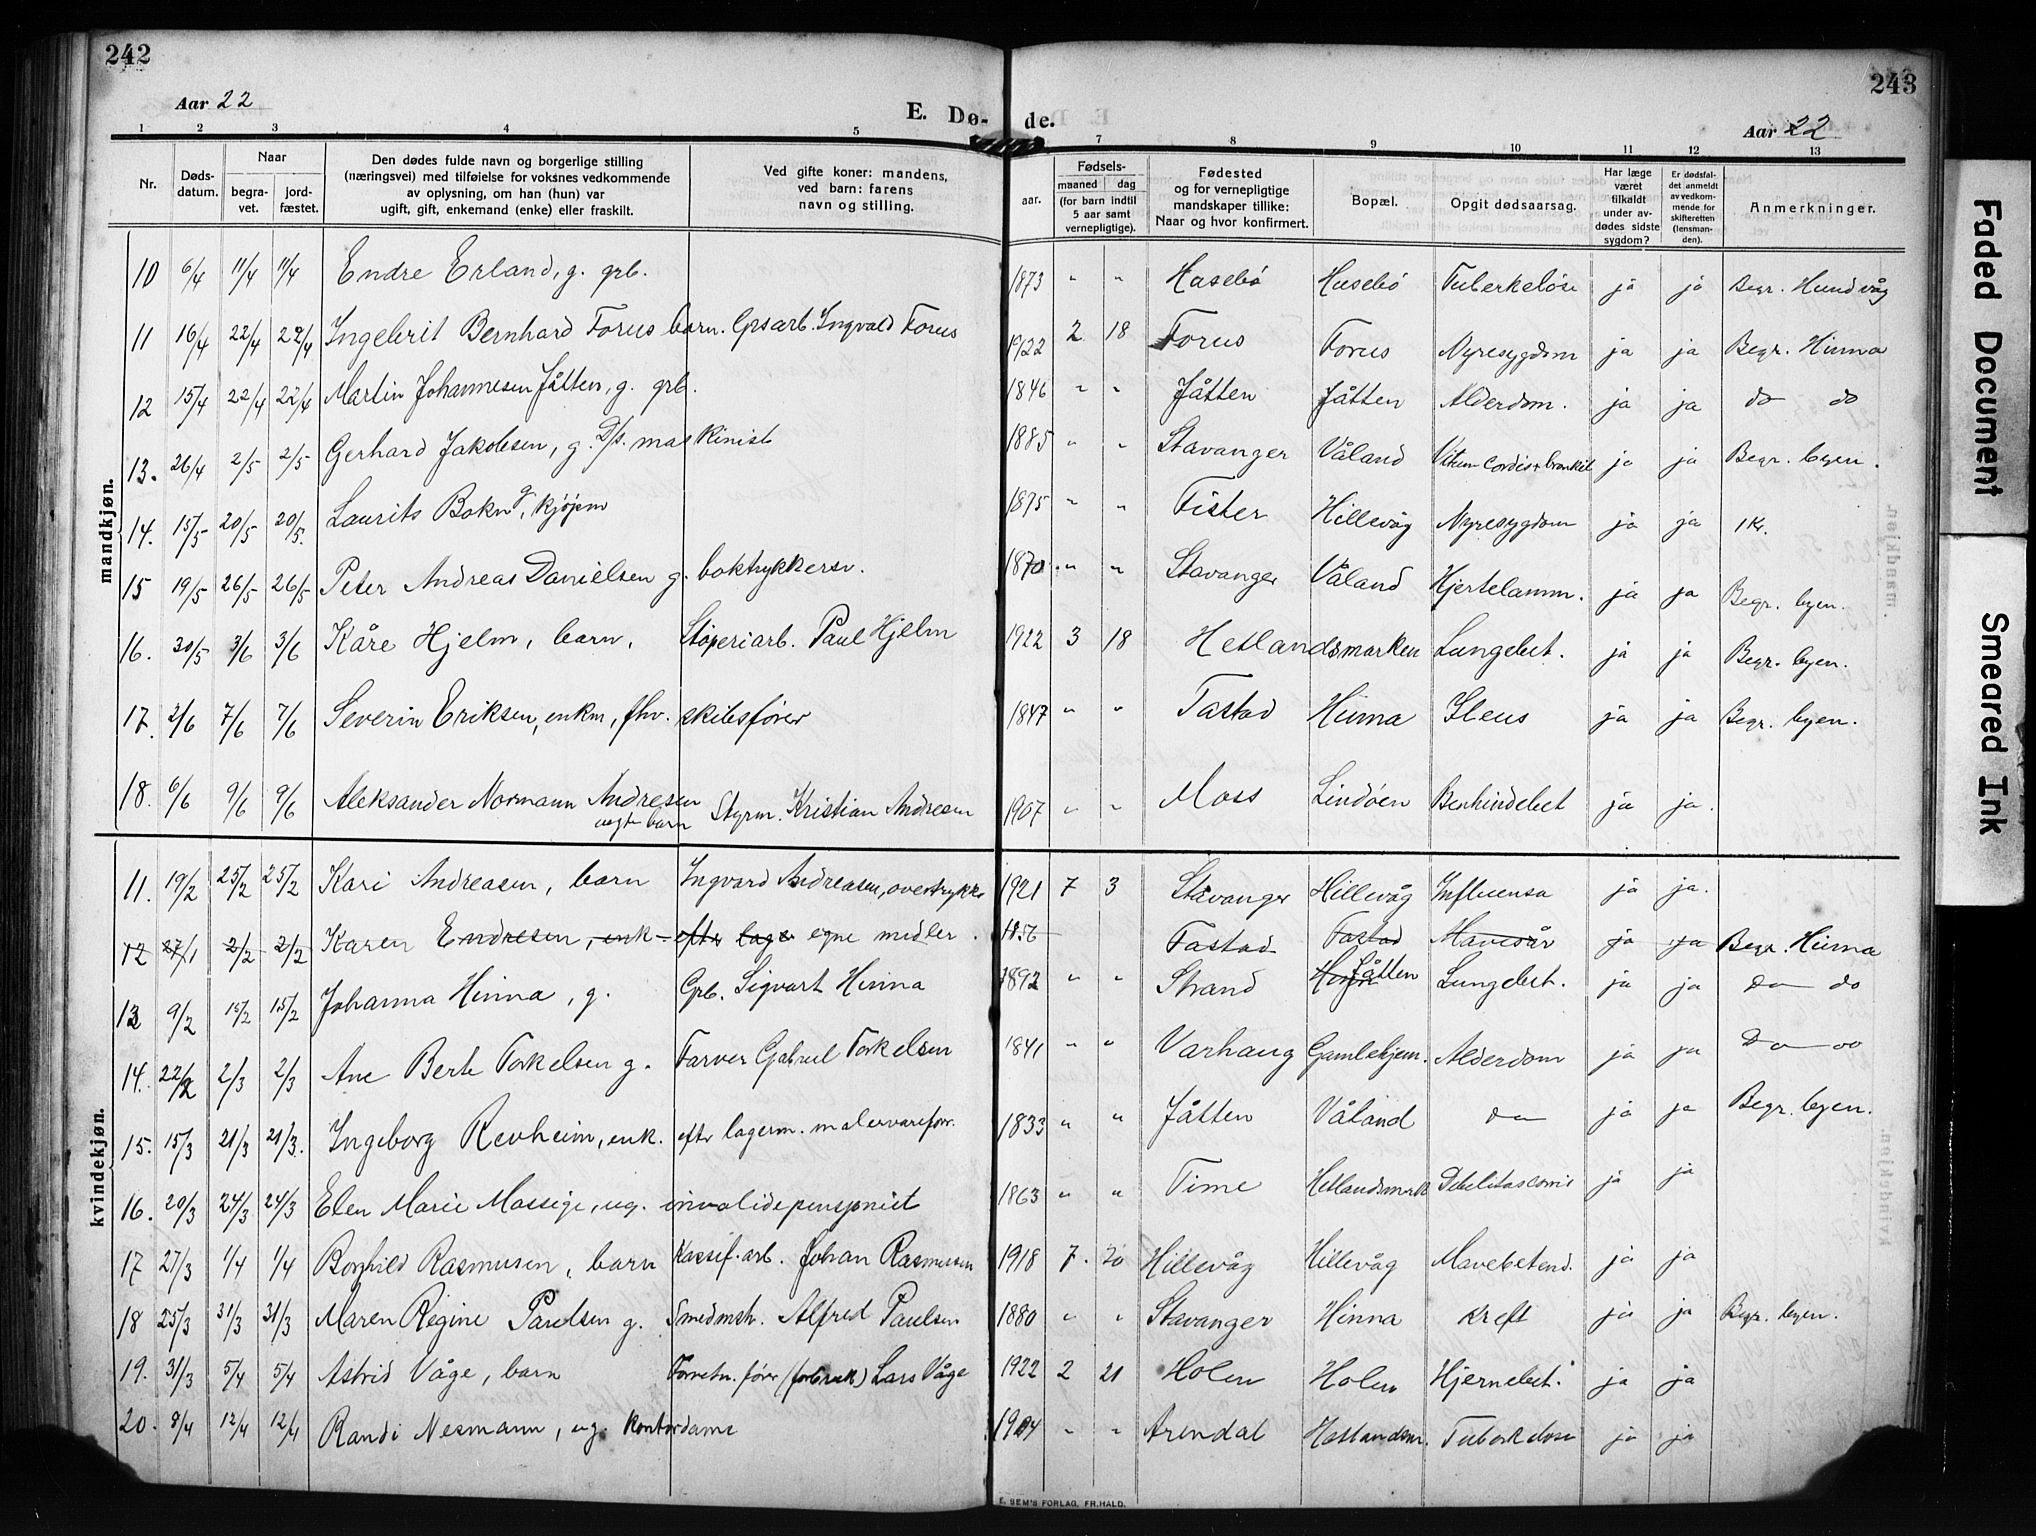 242
243
Aar 22
E. Dø-
de.
Aar 22
1 2 3 4 5 7 8 9 10 11 12 13
Nr.
Døds-
datum.
Naar
begra-
vet.
jord-
fæstet.
Den dødes fulde navn og borgerlige stilling
(næringsvei) med tilføielse for voksnes vedkommende
av oplysning, om han (hun) var
ugift, gift, enkemand (enke) eller fraskilt.
Ved gifte koner: mandens,
ved barn: farens
navn og stilling.
aar.
Fødsels-
maaned dag
(for barn indtil
5 aar samt
vernepligtige).
Fødested
og for vernepligtige
mandskaper tillike:
Naar og hvor konfirmert.
Bopæl.
Opgit dødsaarsag.
Har læge
været
tilkaldt
under av-
dødes sidste
sygdom?
Er dødsfal-
det anmeldt
av vedkom-
mende for
skifteretten
(lensman-
den).
Anmerkninger.
mandkjøn.
10 6/4 11/4 11/4 Endre Erland, g. grb. 1873 " " Husebö Husebö Tuberkeløse ja ja Begr. Hundvåg
11 16/4 22/4 22/4 Ingebrit Bernhard Forus barn. Gpsarb. Ingvald Forus 1922 2 18 Forus Forus Nyresygdom ja ja Begr. Hinna
12 15/4 22/4 22/4 Martin Johannesen Jåtten, g. grb. 1846 " " Jåtten Jåtten Alderdom. ja ja do do
13. 26/4 2/5 2/5 Gerhard Jakobsen, g. D/s. maskinist 1885 " " Stavanger Våland Vitium Cordis + bronkit ja ja Begr. byen.
14. 15/5 20/5 20/5. Laurits Bokn g, kjøpm 1875 " " Fister Hillevåg Nyresygdom ja ja 1 Kr.
15 19/5 26/5 26/5 Peter Andreas Danielsen g. boktrykkersv. 1870. " " Stavanger Våland Hjertelamm. ja ja Begr. byen.
16. 30/5 3/6 3/6 Kåre Hjelm, barn, Støperiarb. Paul Hjelm 1922 3 18 Hetlandsmarken Lungebet. ja ja Begr. byen.
17. 2/6 7/6 7/6 Severin Eriksen, enkm, fhv. skibsfører 1847 " " Tastad Hinna Ileus ja ja Begr. byen.
18. 6/6 9/6 9/6 Aleksander Normann Andresen Styrm. Kristian Andresen 1907 " " Moss Lindöen Benhindebet ja ja.
uegte barn
kvindekjøn.
11. 19/2 25/2 25/2 Kari Andreasen, barn Ingvard Andreasen, overtrykke 1921 7 3 Stavanger Hillevåg Influensa ja ja.
12 27/1 2/2 2/2 Karen Endresen, enk efter lags egne midler. 1856 Tastad Tastad Mavesår ja ja Begr. Hinna
13 9/2 15/2 15/2 Johanna Hinna, g. Grb. Sigvart Hinna 1892 " " Strand Hinna Jåtten Lungebet. ja ja do do
14. 22/2 2/3 2/3 Ane Berte Torkelsen g. Farver Gabriel Torkelsen 1841 " " Varhaug Gamlehjem. Alderdom ja ja do do
15. 15/3 21/3 21/3. Ingeborg Revheim, enk. efter lagerm. malervareforr. 1833 " " Jåtten Våland do ja ja Begr. byen.
16. 20/3 24/3 24/3 Elen Marie Massige, ug. invalidepensjonist 1863 " " Time Hetlandsmark Debilitas cordis ja ja
17 27/3 1/4 1/4 Borghild Rasmusen, barn Kassef. arb. Johan Rasmusen 1918 7. 20 Hillevåg Hillevåg Mavebetend. ja ja
18 25/3 31/3 31/3 Maren Regine Paulsen g. Smedmstr. Alfred Paulsen 1880 " " Stavanger Hinna kreft ja ja Begr. byen.
19. 31/3 5/4 5/4 Astrid Våge, barn Forretn. fører (forbruk) Lars Våge 1922 2 21 Holen Holen Hjernebet. ja ja
20. 8/4 12/4 12/4 Randi Nesmann, ug. kontordame 1904 " " Arendal Hetlandsm. Tuberkelose ja ja
E. SEM'S FORLAG, FR.HALD.
Faded Document
Smeared Ink